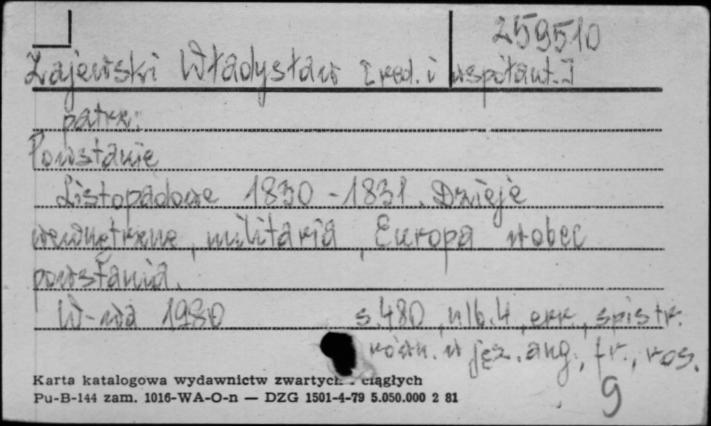 259510
Zajewski Władysław [red. i współaut.]
patrz:
Powstanie
Listopadowe 1830-1831. Dzieje
wewnętrzne, militaria, Europa wobec
powstania.
W-wa 1980 s. 480, nlb. 4, err., spis tr.
równ. w jęz. ang., fr., ros.
Karta katalogowa wydawnictw zwartych i ciągłych
Pu-B-144 zam. 1016-WA-O-n — DZG 1501-4-79 5.050.000 2 81
9